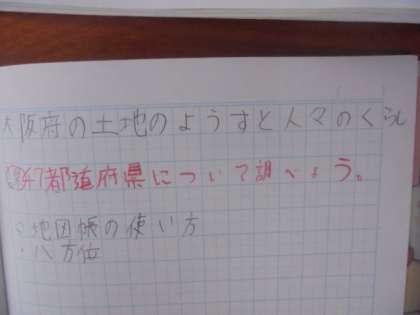 大阪府の土地のようすと人々のくらし
47都道府県について調べよう。
・地図帳の使い方
・八方位